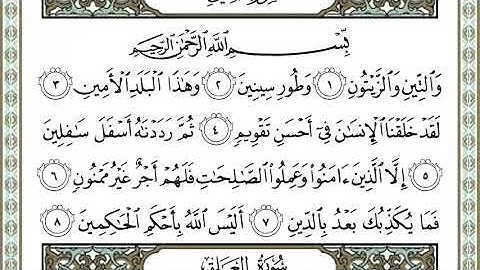 بِسْمِ اللَّهِ الرَّحْمَٰنِ الرَّحِيمِ
وَالتِّينِ وَالزَّيْتُونِ ١ وَطُورِ سِينِينَ ٢ وَهَٰذَا الْبَلَدِ الْأَمِينِ ٣
لَقَدْ خَلَقْنَا الْإِنسَانَ فِي أَحْسَنِ تَقْوِيمٍ ٤ ثُمَّ رَدَدْنَاهُ أَسْفَلَ سَافِلِينَ
٥ إِلَّا الَّذِينَ ءَامَنُوا وَعَمِلُوا الصَّالِحَاتِ فَلَهُمْ أَجْرٌ غَيْرُ مَمْنُونٍ ٦
فَمَا يُكَذِّبُكَ بَعْدُ بِالدِّينِ ٧ أَلَيْسَ اللَّهُ بِأَحْكَمِ الْحَاكِمِينَ ٨
سُورَةُ الْعَلَقِ